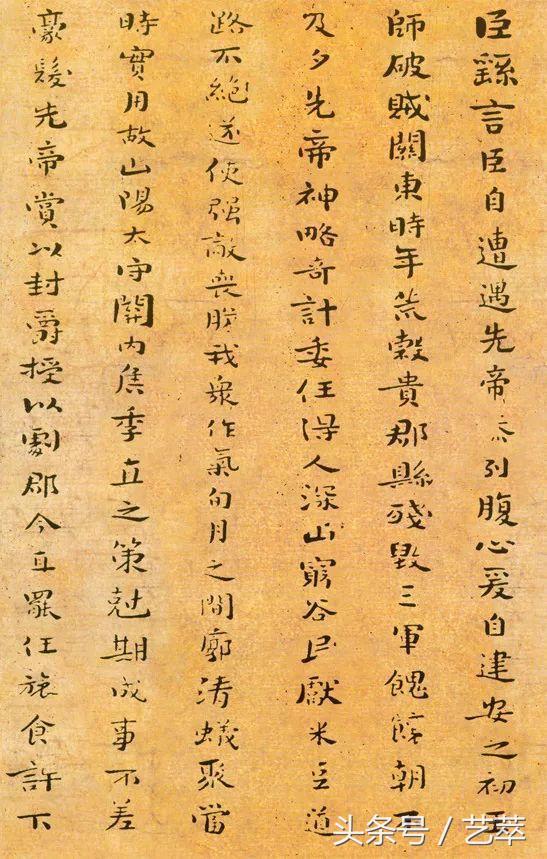 臣繇言臣自遭遇先帝忝列腹心爰自建安之初王
師破賊關東時年荒穀貴郡縣殘毀三軍餽饟朝不
及夕先帝神略奇計委任得人深山窮谷民獻米豆道
路不絕遂使强敵喪膽我衆作氣旬月之間廓清蟻聚當
時實用故山陽太守關內侯季直之策尅期成事不差
豪髮先帝賞以封爵授以劇郡今直罷任旅食許下
头条号/艺萃